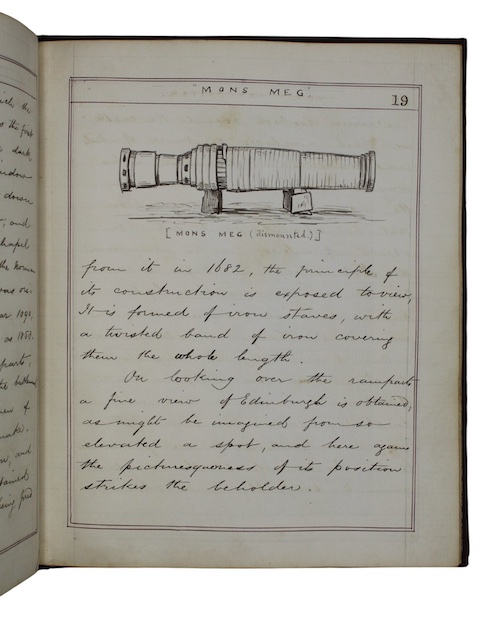 ich the
dark
and
chapel
as 1858.
and
MONS MEG
19
[ MONS MEG (dismounted) ]
from it in 1682, the principle of
its construction is exposed to view,
It is formed of iron staves, with
a twisted band of iron covering
them the whole length.
On looking over the ramparts
a fine view of Edinburgh is obtained,
as might be imagined from so
elevated a spot, and here again
the picturesqueness of its position
strikes the beholder.